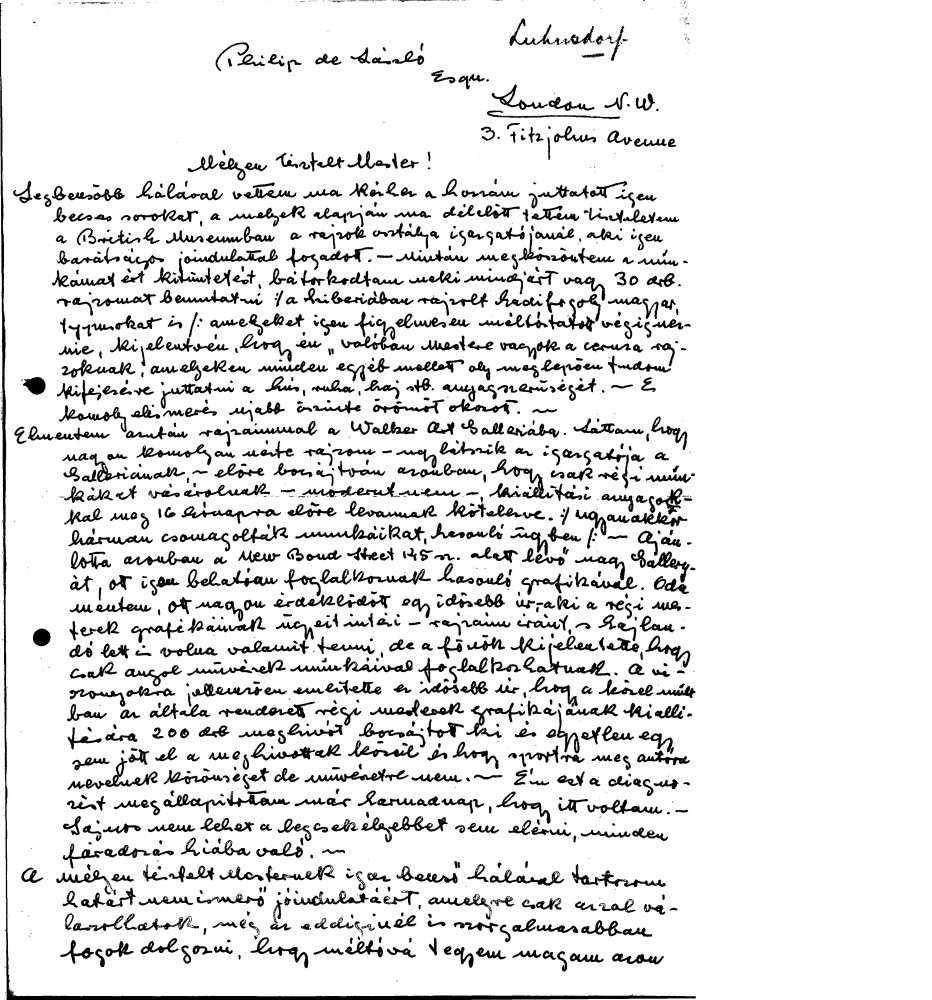 Luhnsdorf
Philip de László
Esqu.
London N.W.
3. Fitzjohns Avenue
Mélyen tisztelt Mester!
Legbensőbb hálával vettem ma kézhez a hozzám juttatott igen
becses sorokat, a melyek alapján ma délelőtt tettem tiszteletem
a British Museumban a rajzok osztálya igazgatójánál, aki igen
barátságos joindulattal fogadott. – Miután megköszöntem a mun-
kámat ért kitüntetést, bátorkodtam neki mindjárt vagy 30 drb.
rajzomat bemutatni :/a Siberiában rajzolt hadifogoly magyar
typusokat is/: amelyeket igen figyelmesen méltóztatott végignéz-
nie, kijelentvén, hogy én „valóban mestere vagyok a ceruza raj-
zoknak", amelyeken minden egyéb mellett oly meglepően tudom
kifejezésre juttatni a hús, ruha, haj stb. anyagszerűségét. – Ez
komoly elismerés ujabb őszinte örömöt okozott. –
Elmentem azután rajzaimmal a Walker Art Galleriába. Láttam, hogy
nagyon komolyan nézte rajzom – ugy látszik az igazgatója a
Galleriának, – előre bocsájtván azonban, hogy csak régi mun-
kákat vásárolnak – modernt nem –, kiállítási anyagok-
kal meg 16 hónapra előre levannak kötelezve. :/ugyanakkor
hárman csomagolták munkáikat, hasonló ügyben/: – Aján-
lotta azonban a New Bond Street 145 sz. alatt lévő nagy Gallery-
át, ott igen behatóan foglalkoznak hasonló grafikával. Oda
mentem, ott nagyon érdeklődött egy idősebb úr – aki a régi mes-
terek grafikáinak ügyeit intézi – rajzaim iránt, s hajlan-
dó lett is volna valamit tenni, de a főnök kijelentette, hogy
csak angol művészek munkáival foglalkozhatnak. A vi-
szonyokra jellemzően említette ez idősebb úr, hogy a közel múlt-
ban az általa rendezett régi mesterek grafikájának kiállí-
tására 200 drb meghivót bocsájtott ki és egyetlen egy
sem jött el a meghivottak közül és hogy sportra meg autóra
nevelnek közönséget de művészetre nem. – Én ezt a diagno-
zist megállapítottam már harmadnap, hogy itt voltam. –
Sajnos nem lehet a legcsekélyebbet sem elérni, minden
fáradozás hiába való. –
A mélyen tisztelt Mesternek igaz benső hálával tartozom
határt nem ismerő jóindulatáért, amelyre csak azzal vá-
laszolhatok, még az eddiginél is szorgalmasabban
fogok dolgozni, hogy méltóvá tegyem magam azon